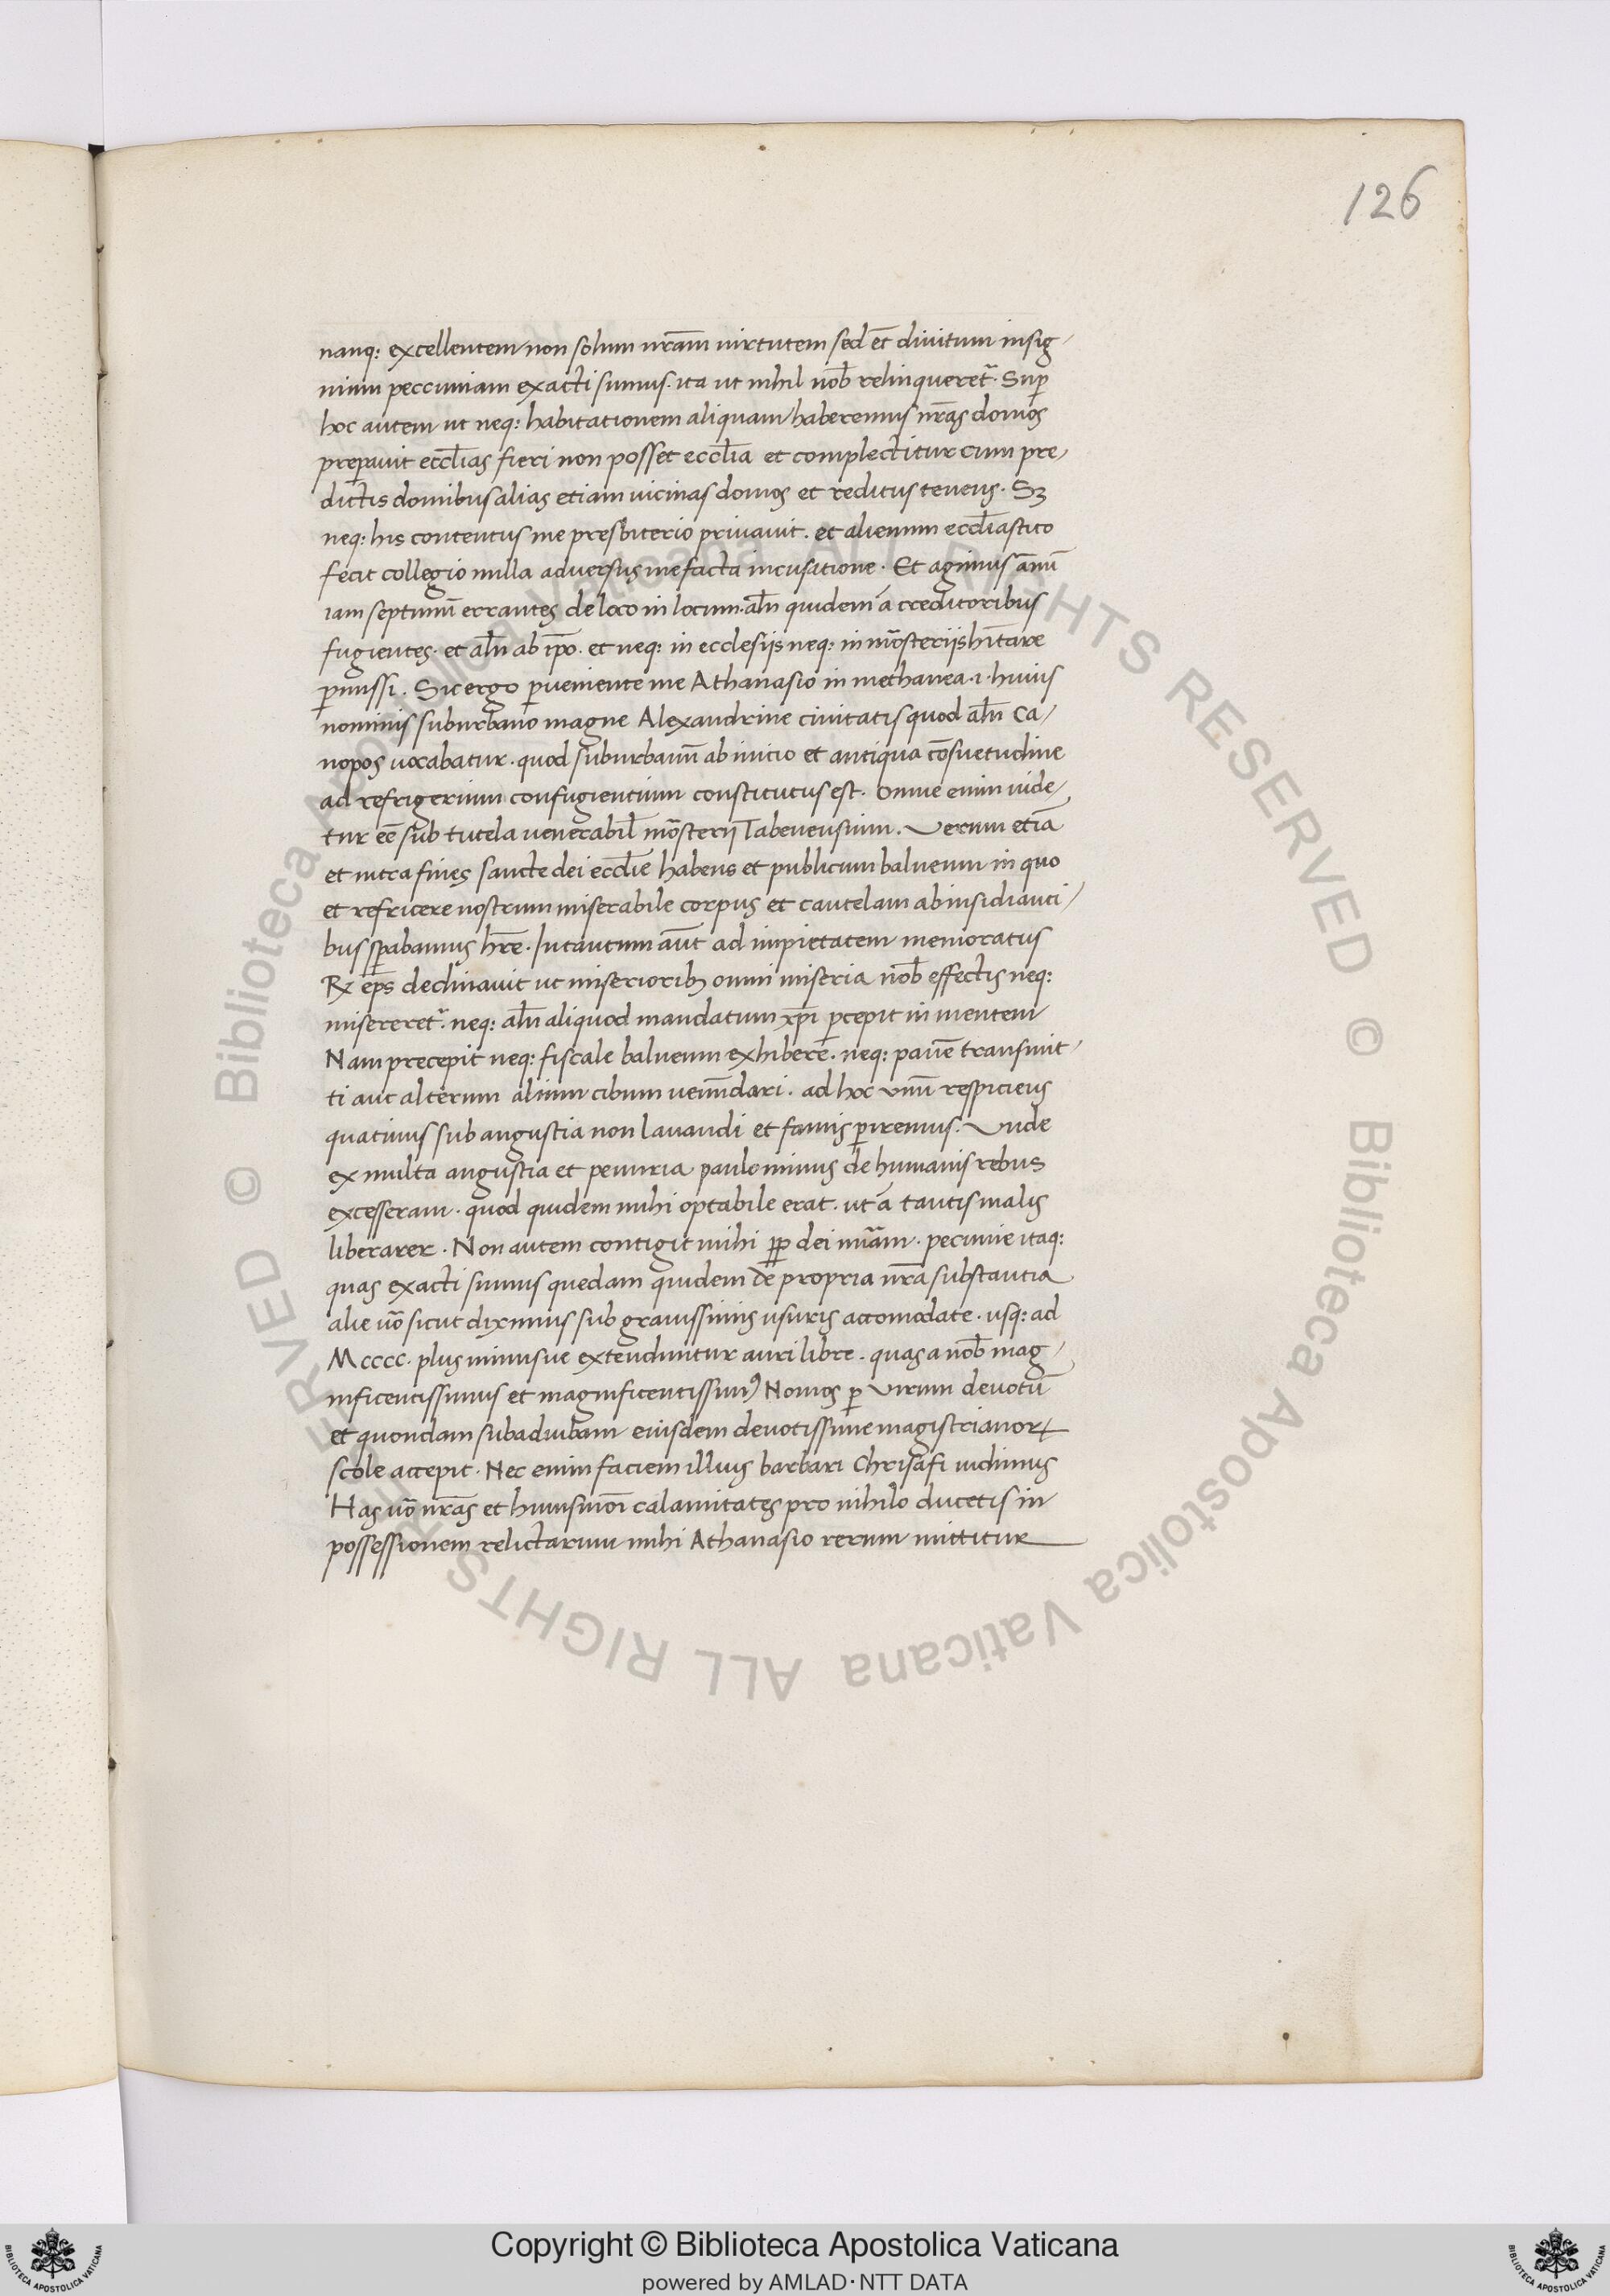 126
nanq: excellentem non solum nr̄am uirtutem sed et̄ diuitum insig
nium peccuniam exacti sumus. ita ut nihil nob̄ relinqueret̄. Sup̄
hoc autem ut neq: habitationem aliquam haberemus nr̄as domos
prep̄auit eccl̄ias fieri non posset eccl̄ia et complectitur cum pre
dictis domibus alias etiam uicinas domos et reditus tenens. Sꝫ
neq: his contentus me presbiterio priuauit. et alienum eccl̄iastico
fecit collegio nulla aduersus me facta incusatione. Et agimus ānū
iam septimū errantes de loco in locum. al̄n quidem a creditoribus
fugientes. et al̄n ab ip̄o. et neq: in ecclesiis neq: in mōsteriis hītare
p̄missi. Sic ergo p̄ueniente me Athanasio in methanea .i. huius
nominis suburbano magne Alexandrine ciuitatis quod al̄n Ca
nopos uocabatur. quod suburbanū ab inicio et antiqua cōsuetudine
ad refrigerium confugientium constitutus est. Omne enim uide
tur eē sub tutela uenerabil̄ mōsterij Tabenensium. Verum etiā
et intra fines sancte dei eccl̄ie habens et publicum balneum in quo
et reficere nostrum miserabile corpus et cautelam ab insidianti
bus sp̄abamus hr̄e. Intantum aūt ad impietatem memoratus
R eps̄ declinauit ut miserioribꝫ omni miseria nob̄ effectis neq:
misereret̄. neq: al̄n aliquod mandatum xp̄i p̄cepit in mentem
Nam precepit neq: fiscale balneum exhibere. neq: panē transmit
ti aut alterum alium cibum uenūdari. ad hoc unū respiciens
quatinus sub angustia non lauandi et famis p̄iremus. Unde
ex multa angustia et penuria paulominus de humanis rebus
excesseram. quod quidem mihi optabile erat. ut a tantis malis
liberarer. Non autem contigit mihi pp̄ dei mīam. pecunie itaq:
quas exacti sumus quedam quidem de propria nr̄a substantia
alie uō sicut diximus sub grauissimis usuris accomodate. usq: ad
Mcccc. plus minusue extenduntur auri libre. quas a nob̄ mag
nificentissimus et magnificentissimꝰ Nomos p̄ uirum deuotū
et quondam subadiubam eiusdem deuotissime magistrianoꝝ
scole accepit. Nec enim faciem illius barbari Chrisafi uidimus
Has uō nr̄as et huiusmōi calamitates pro nihilo ducetis in
possessionem relictarum mihi Athanasio rerum mittitur
Copyright © Biblioteca Apostolica Vaticana
powered by AMLAD·NTT DATA